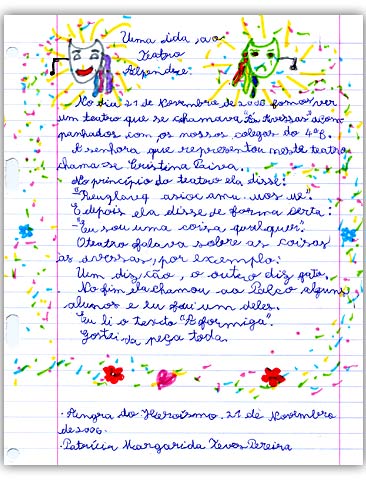 Uma ida, ao
Teatro
Alpendre.
No dia 21 de Novembro de 2006 fomos ver
um teatro que se chamava "Às Avessas" acom-
panhados com os nossos colegas do 4ºB.
A senhora que representou neste teatro
chama-se Cristina Paiva.
No princípio do teatro ela disse:
asioc amu uos ue".
E depois ela disse de forma certa:
"Eu sou uma coisa qualquer".
O teatro falava sobre as coisas
às avessas, por exemplo:
Um diz cão, o outro diz gato.
No fim ela chamou ao Palco alguns
alunos e eu fui um deles.
Eu li o texto "A formiga".
Gostei da peça toda.
Angra do Heroísmo, 21 de Novembro
de 2006.
Patrícia Margarida Pereira